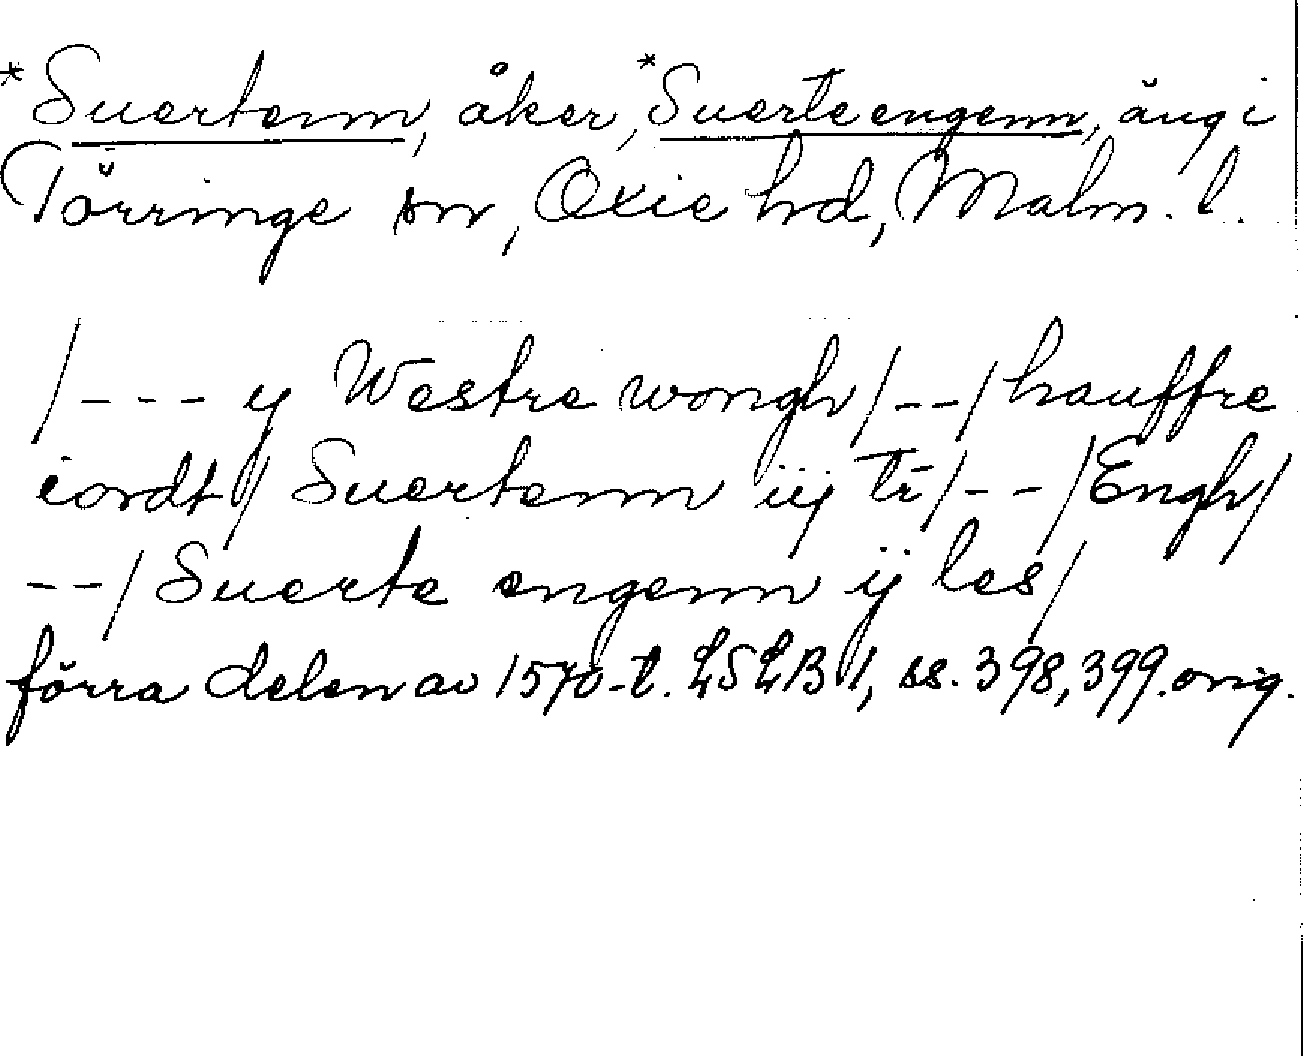 *Suertenn, åker, *Suerteengenn, äng i
Törringe sn, Oxie hd, Malm. l.
/--- y Westre wongh/--/hauffre
iordt/ Suertenn iij tr̄/--/Engh/
--/Suerte engenn ij les/
förra delen av 1570-t. LSLB 1, ss. 398, 399. orig.